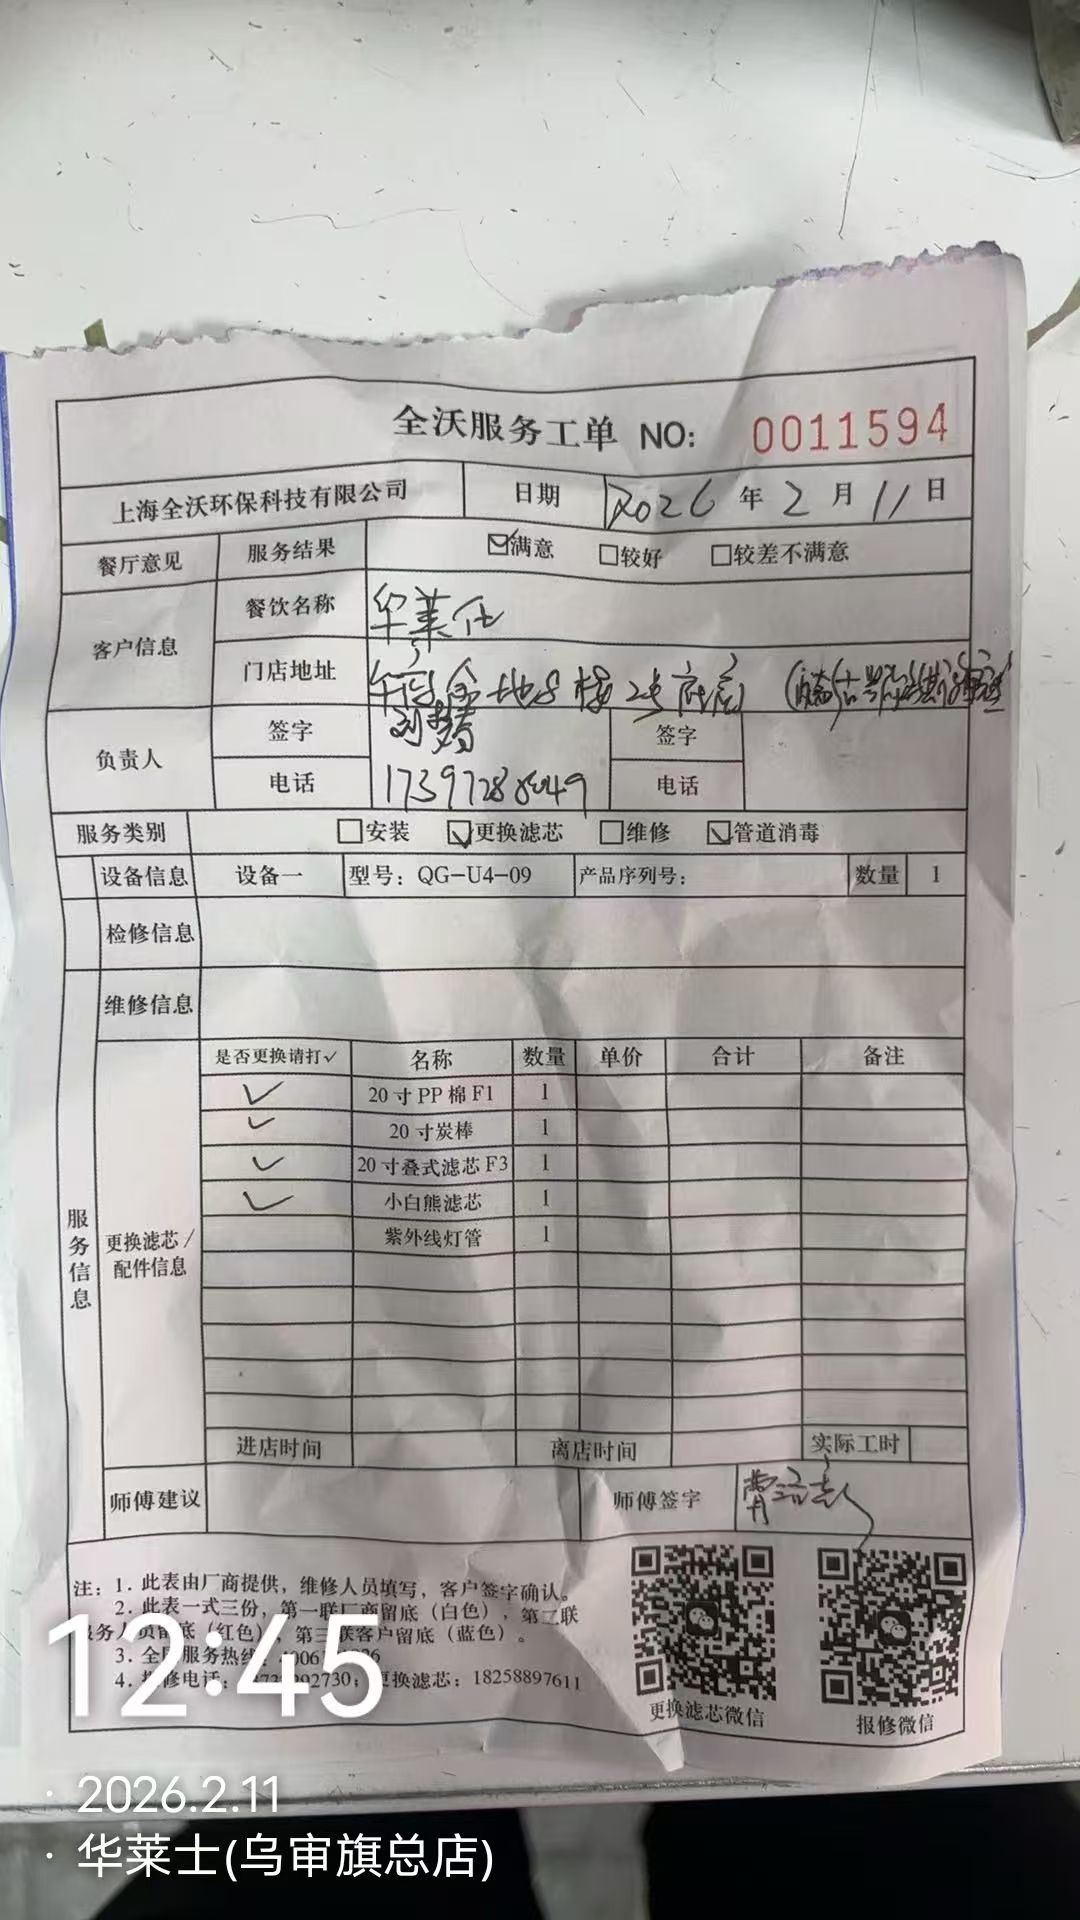 全沃服务工单 NO: 0011594
上海全沃环保科技有限公司 日期 2026 年 2 月 11 日
餐厅意见 服务结果 ☑满意 □较好 □较差不满意
客户信息 餐饮名称 华莱仕
门店地址 金地 楼 2号 底店
负责人 签字 刘 签字
电话 电话
服务类别 □安装 ☑更换滤芯 □维修 ☑管道消毒
设备信息 设备一 型号: QG-U4-09 产品序列号: 数量 1
检修信息
维修信息
服务信息
更换滤芯/配件信息
是否更换请打✓ 名称 数量 单价 合计 备注
✓ 20寸PP棉F1 1
✓ 20寸炭棒 1
✓ 20寸叠式滤芯F3 1
✓ 小白熊滤芯 1
紫外线灯管 1
进店时间 离店时间 实际工时
师傅建议 师傅签字
注: 1. 此表由厂商提供, 维修人员填写, 客户签字确认。
2. 此表一式三份, 第一联厂商留底(白色), 第二联
服务人员留底(红色), 第三联客户留底(蓝色)。
3. 全国服务热线:
4. 报修电话: 更换滤芯: 18258897611
更换滤芯微信 报修微信
12:45
· 2026.2.11
· 华莱士(乌审旗总店)